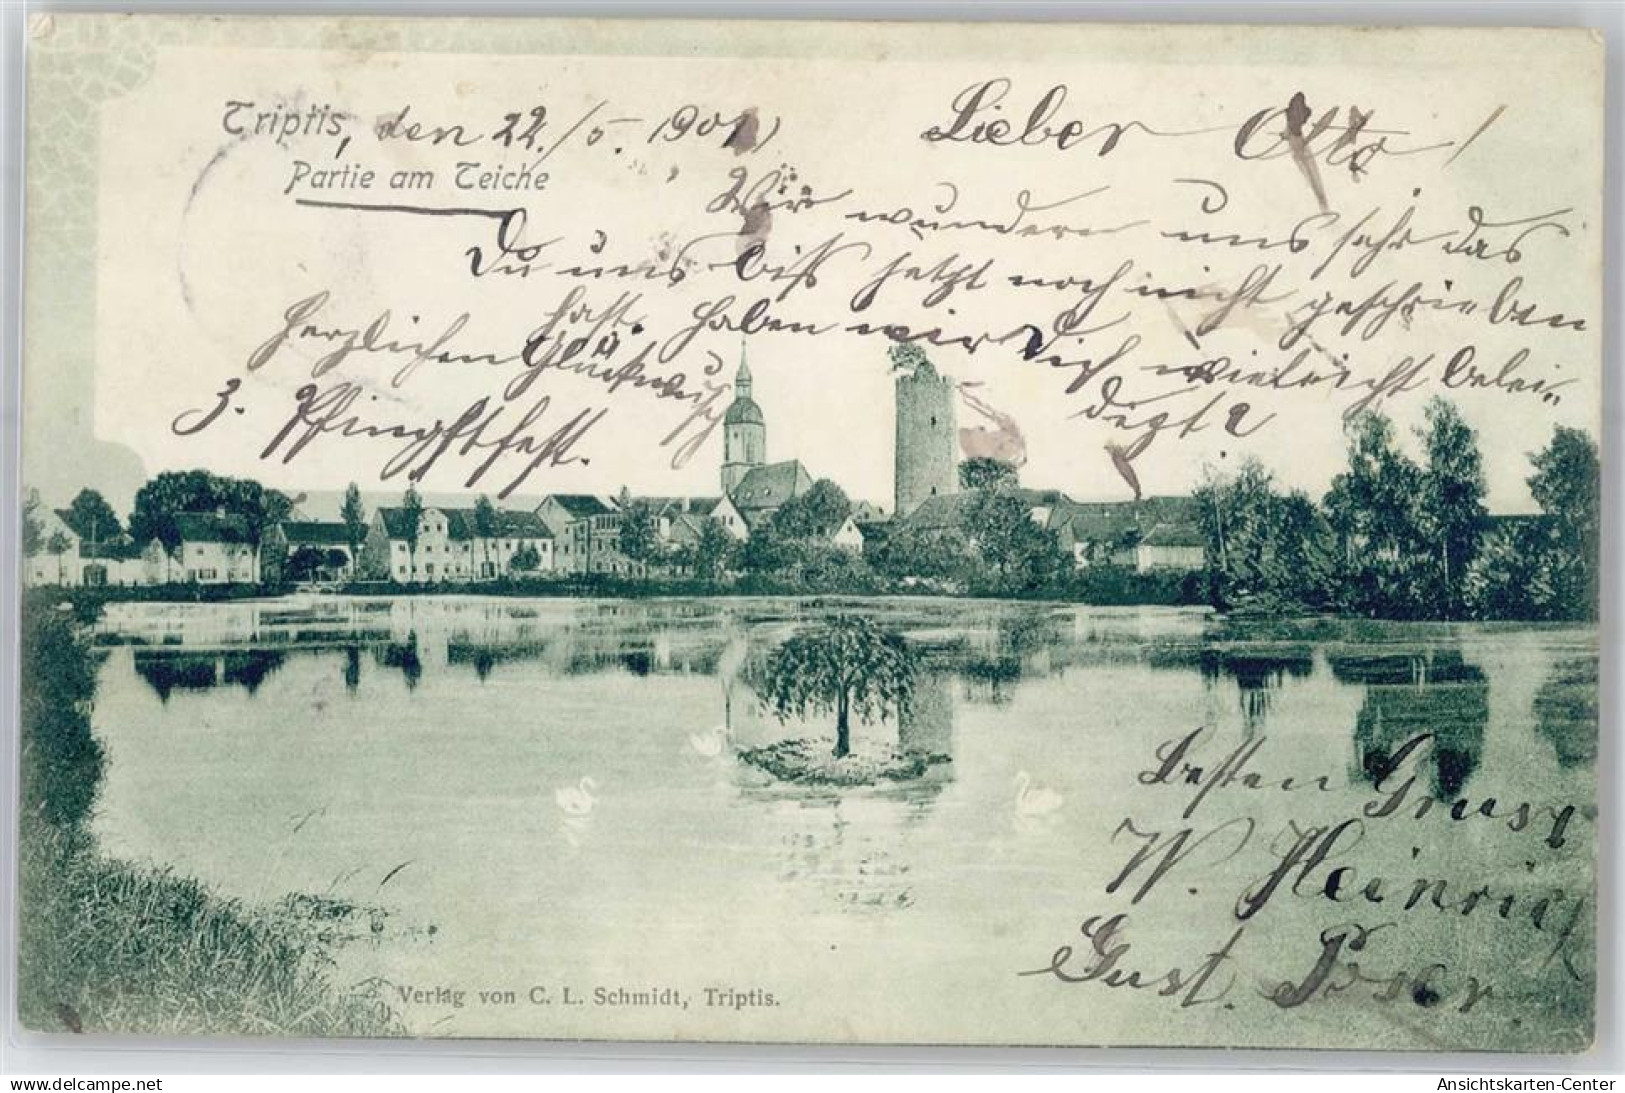 Triptis, den 22./5. 1901
Partie am Teiche
Lieber Otto!
Wir wundern uns sehr das
Du uns biss jetzt noch nicht geschrieben
hast. haben wir Dich vielleicht belei-
digt?
Herzlichen Glückwunsch
z. Pfingstfest.
Besten Gruss
W. Heinrich
Gust. Poser.
Verlag von C. L. Schmidt, Triptis.
delcampe.net
Ansichtskarten-Center